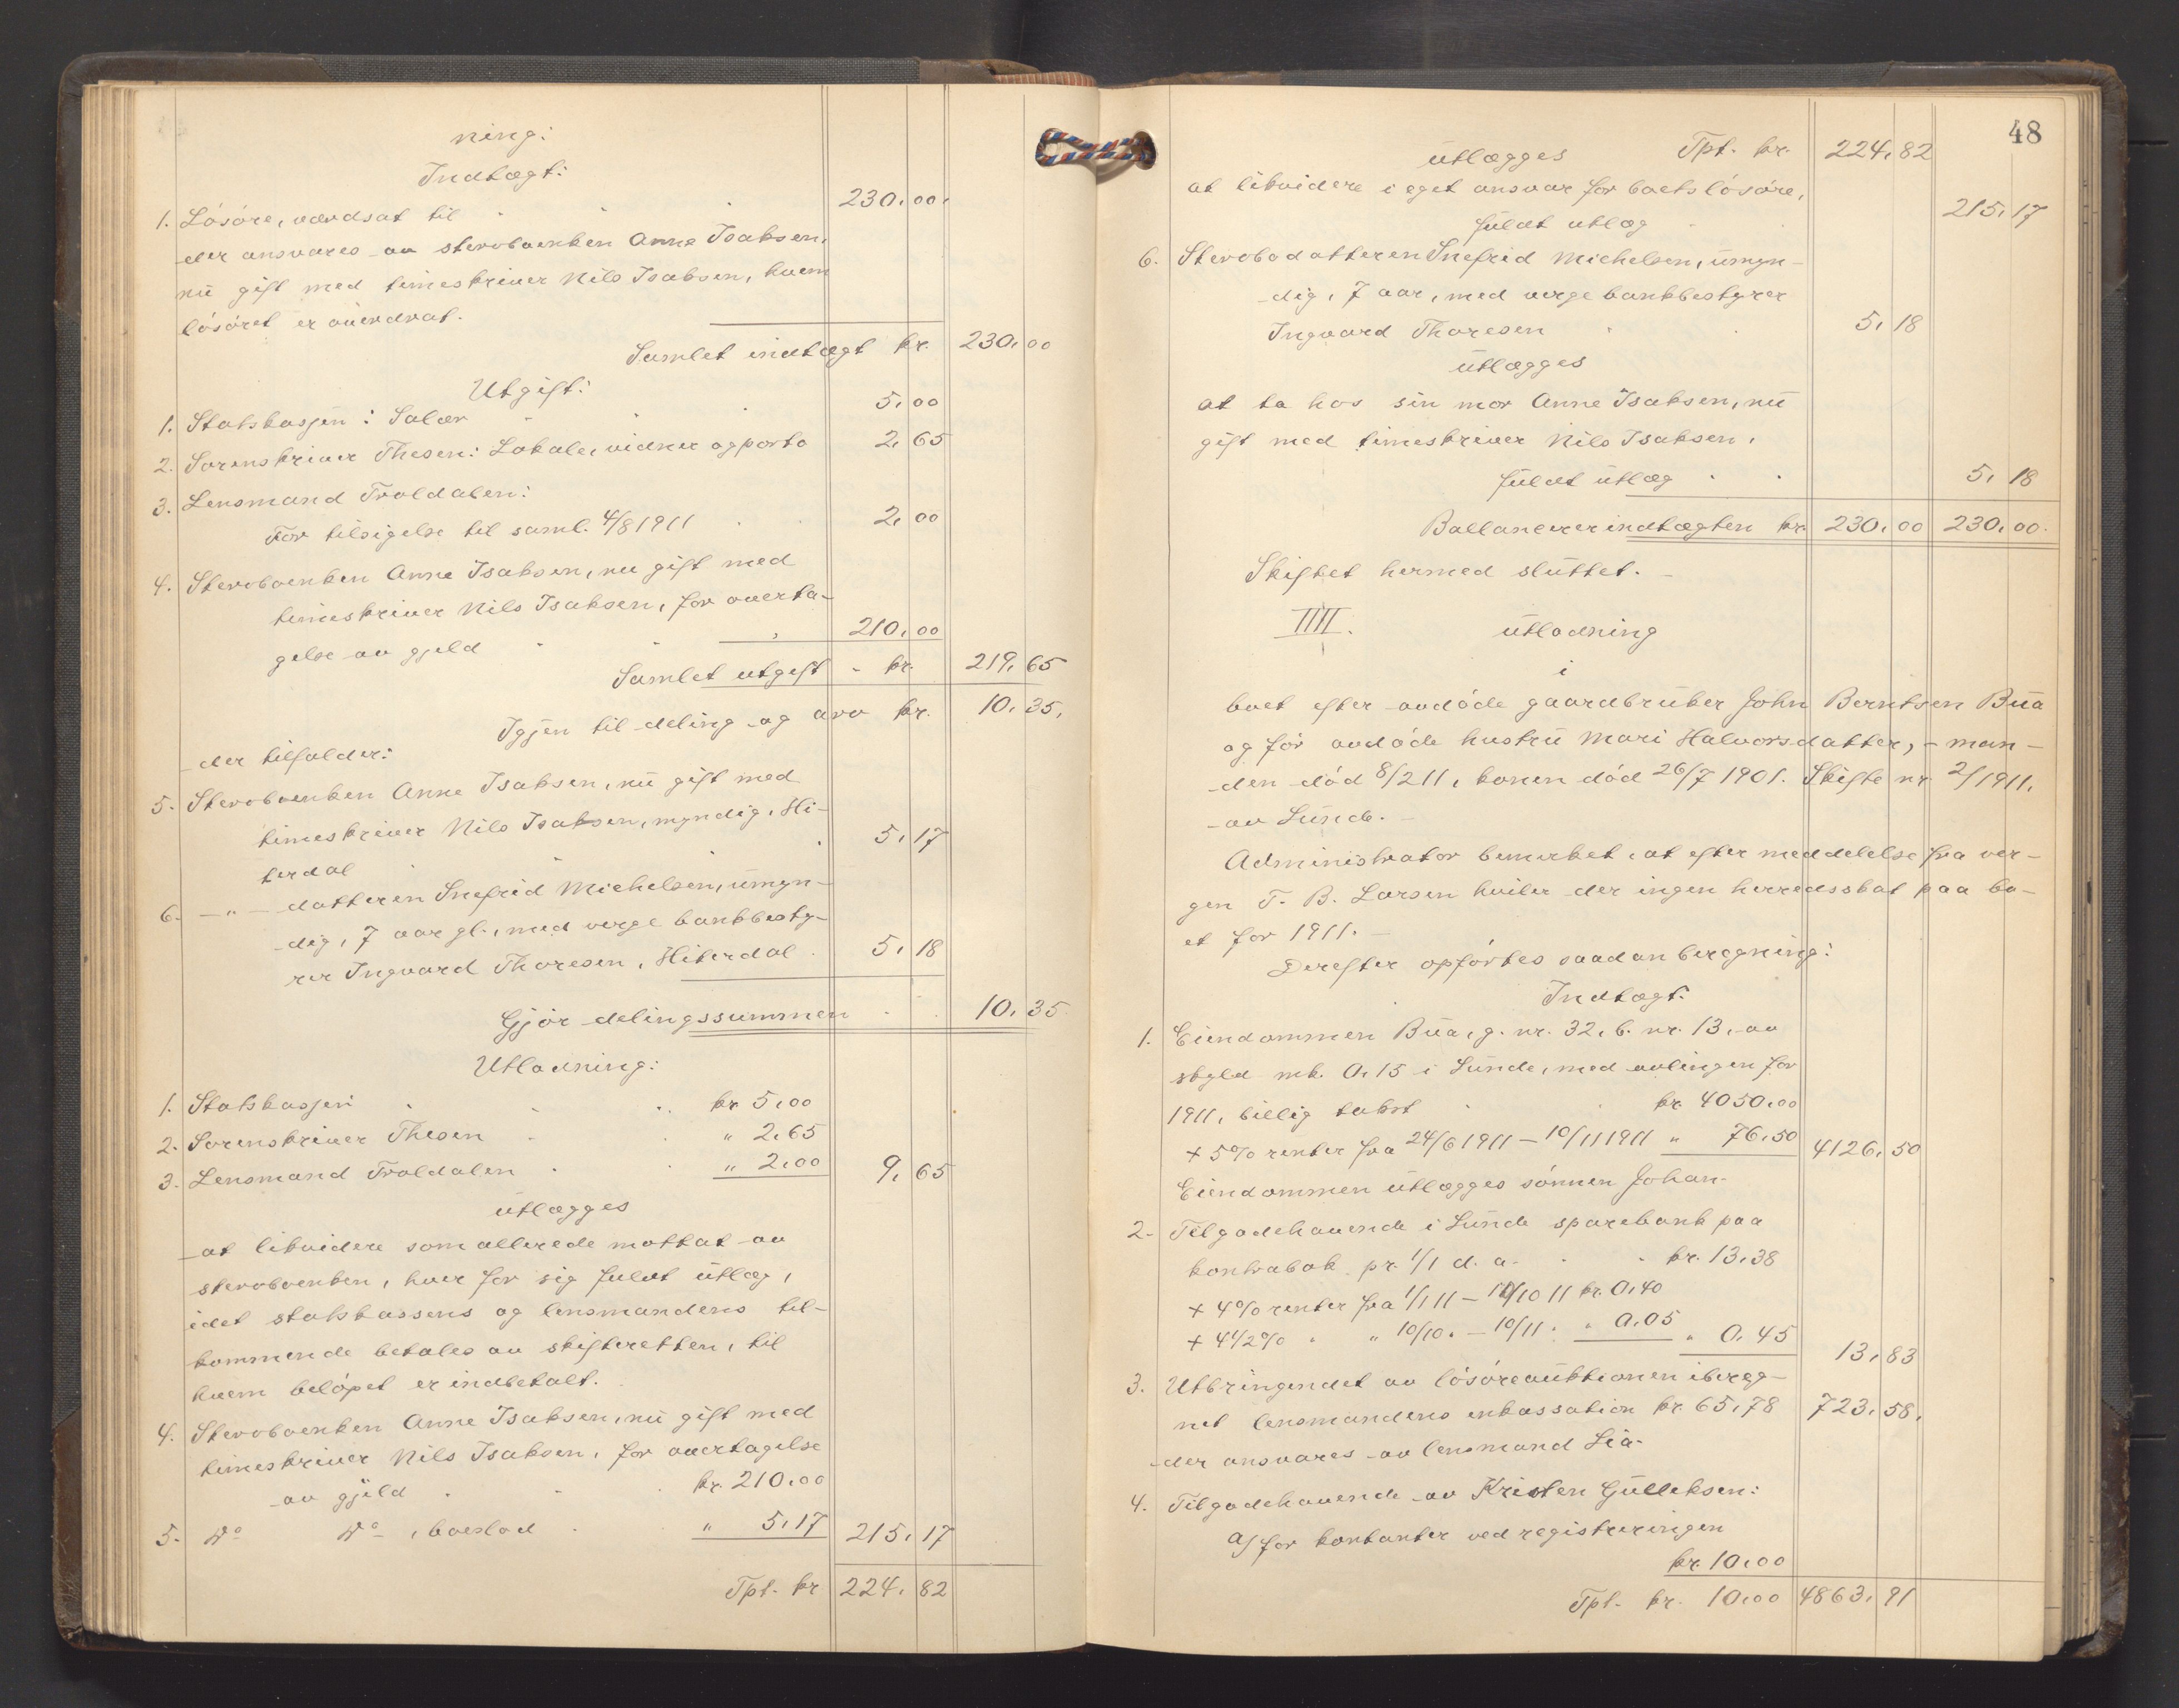 ning:
Indtægt:
1. Løsøre, værdsat til 230,00.
der ansvares av stervboenken Anne Isaksen,
nu gift med timeskriver Nils Isaksen, hvem
løsøret er overdrat.
Samlet indtægt kr. 230,00
Utgift:
1. Statskassen: Salær 5,00
2. Sorenskriver Thesen: Lokale, vidner og porto 2,65
3. Lensmand Troldalen:
For tilsigelse til saml. 4/8 1911 2,00
4. Stervboenken Anne Isaksen, nu gift med
timeskriver Nils Isaksen, for overta-
gelse av gjeld 210,00
Samlet utgift - kr. 219,65
Igjen til deling og arv kr. 10,35,
der tilfalder:
5. Stervboenken Anne Isaksen, nu gift med
timeskriver Nils Isaksen, myndig, Hi-
terdal 5,17
6. — " — datteren Snefrid Michelsen, umyn-
dig, 7 aar gl., med verge bankbesty-
rer Ingvard Thoresen, Hiterdal 5,18
Gjør delingssummen 10,35.
Utlodning:
1. Statskassen kr 5,00
2. Sorenskriver Thesen " 2,65
3. Lensmand Troldalen " 2,00 9,65
utlægges
at likvidere som allerede mottat av
stervboenken, hver for sig fuldt utlæg,
idet statskassens og lensmandens til-
kommende betales av skifteretten, til
hvem beløpet er indbetalt.
4. Stervboenken Anne Isaksen, nu gift med
timeskriver Nils Isaksen, for overtagelse
av gjeld kr. 210,00
5. Do Do, boeslod " 5,17 215,17
Tpt. kr 224,82
48
Tpt. kr. 224,82
utlægges
at likvidere i eget ansvar for boets løsøre,
fuldt utlæg 215,17
6. Stervbodatteren Snefrid Michelsen, umyn-
dig, 7 aar, med verge bankbestyrer
Ingvard Thoresen 5,18
utlægges
at ta hos sin mor Anne Isaksen, nu
gift med timeskriver Nils Isaksen,
fuldt utlæg 5,18
Ballancerer indtægten kr. 230,00 230,00.
Skiftet hermed sluttet. —
IIII. utlodning
i
boet efter avdøde gaardbruker John Berntsen Bua
og før avdøde hustru Mari Halvorsdatter, - man-
den død 8/2 11, konen død 26/7 1901. Skifte nr 2/1911,
av Lunde. —
Administrator bemerket, at efter meddelelse fra ver-
gen T. B. Larsen hviler der ingen herredsskat paa bo-
et for 1911. —
Derefter opførtes saadan beregning:
Indtægt:
1. Eiendommen Bua, g. nr. 32, b. nr. 13, av
skyld mk. 0,15 i Lunde, med avlingen for
1911, billig takst kr 4050,00
+ 5% renter fra 24/6 1911 — 10/11 1911 " 76,50 4126,50
Eiendommen utlægges sønnen Johan.
2. Tilgodehavende i Lunde sparebank paa
kontrabok pr. 1/1 d. a. kr. 13,38
+ 4% renter fra 1/1 11 — 10/10 11 kr. 0,40
+ 4 1/2% " " 10/10. — 10/11. " 0,05 " 0,45 13,83
3. Utbringendet av løsøreauktionen ibereg-
net lensmandens inkassation kr. 65,78 723,58,
der ansvares av lensmand Lia.
4. Tilgodehavende av Kristen Gulleksen:
a/ for kontanter ved registreringen
kr. 10,00
Tpt. kr. 10,00 4863,91